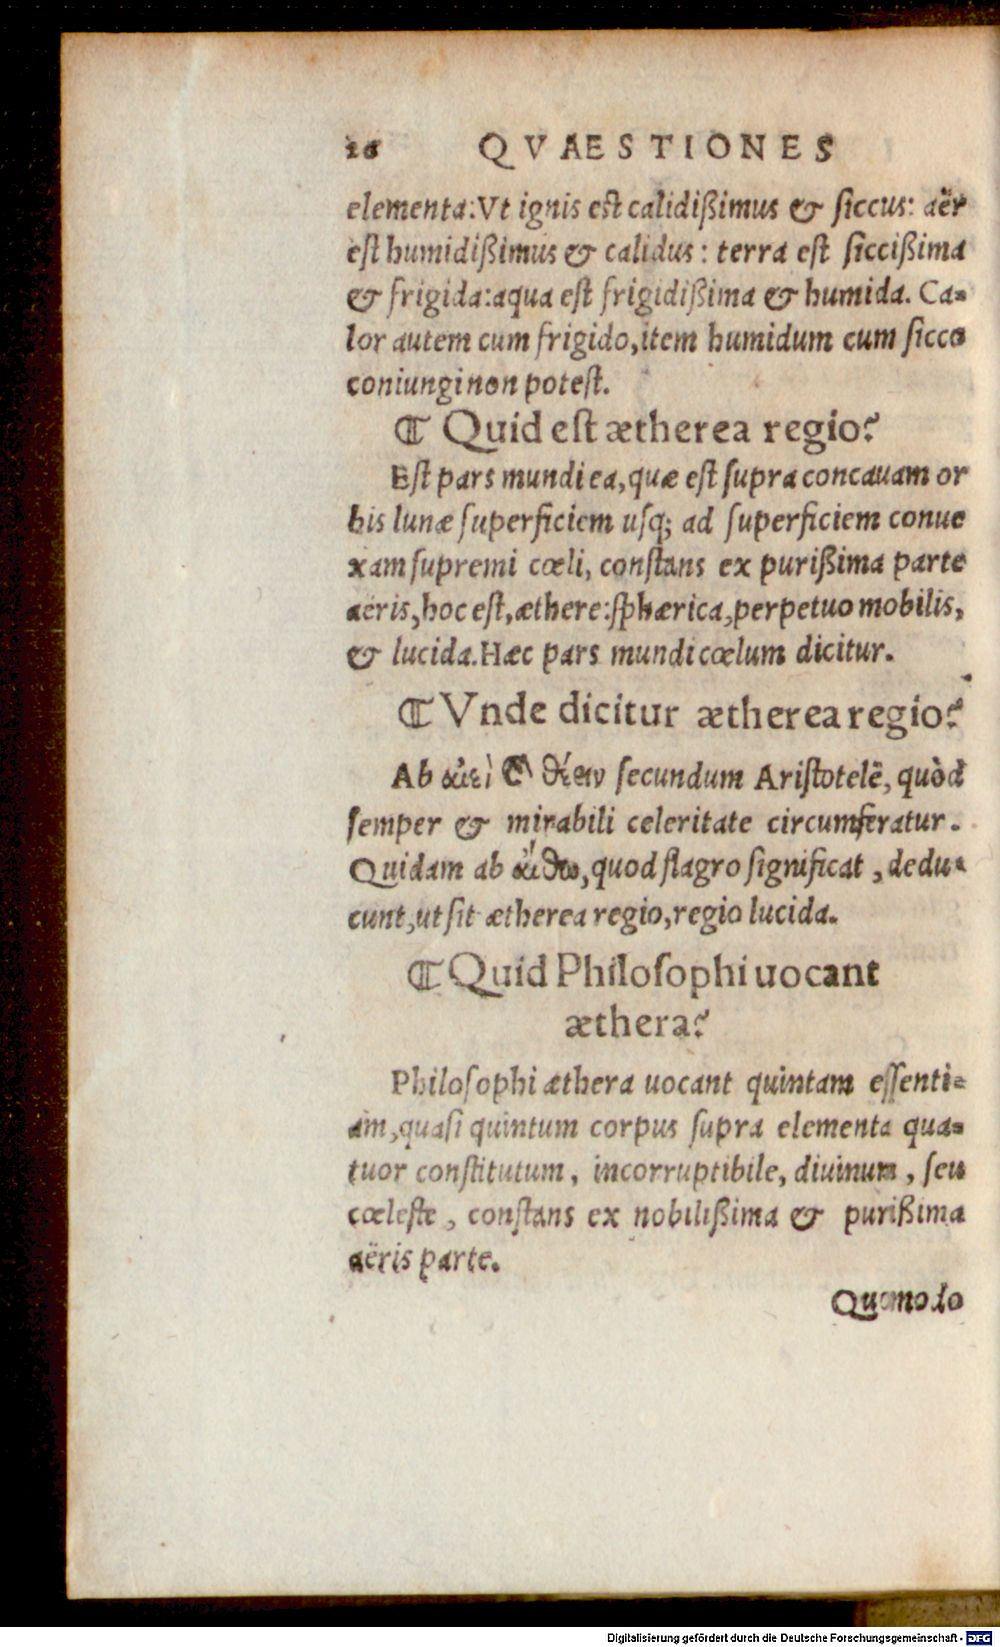 26 QVAESTIONES
elementa:Vt ignis est calidißimus & ſiccus: aër
eſt humidißimus & calidus: terra eſt ſiccißima
& frigida:aqua eſt frigidißima & humida. Ca-
lor autem cum frigido,item humidum cum ſicco
coniungi non poteſt.
¶ Quid eſt ætherea regio?
Eſt pars mundi ea,quæ eſt ſupra concauam or
bis lunæ ſuperficiem uſq; ad ſuperficiem conue
xam ſupremi cœli, conſtans ex purißima parte
aëris,hoc eſt,æthere:ſphærica,perpetuo mobilis,
& lucida.Hæc pars mundi cœlum dicitur.
¶ Vnde dicitur ætherea regio?
Ab ἀεὶ & θέειν ſecundum Ariſtotelẽ, quòd
ſemper & mirabili celeritate circumferatur.
Quidam ab αἴθω,quod flagro ſignificat, dedu-
cunt,ut ſit ætherea regio,regio lucida.
¶ Quid Philoſophi uocant
æthera?
Philoſophi æthera uocant quintam eſſenti-
am,quaſi quintum corpus ſupra elementa qua-
tuor conſtitutum, incorruptibile, diuinum, ſeu
cœleſte, conſtans ex nobilißima & purißima
aëris parte.
Quomodo
Digitalisierung gefördert durch die Deutsche Forschungsgemeinschaft - DFG